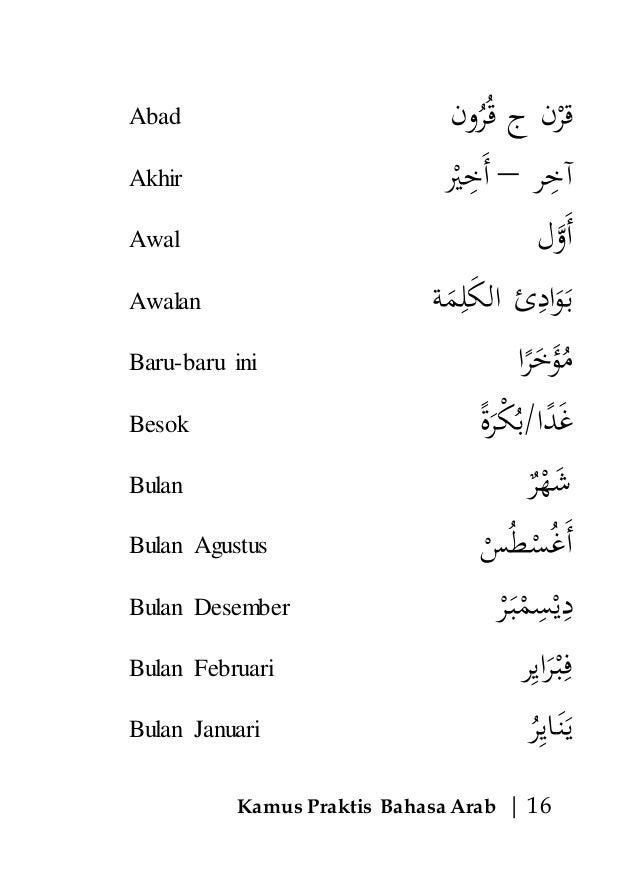 Abad قرْن ج قُرُون
Akhir آخِر – أَخِيْر
Awal أَوَّل
Awalan بَوَادِئ الكَلِمَة
Baru-baru ini مُؤَخَرًا
Besok غَدًا/بُكْرَةً
Bulan شَهْرٌ
Bulan Agustus أَغُسْطُسْ
Bulan Desember دِيْسِمْبَرْ
Bulan Februari فِبْرَايِر
Bulan Januari يَنَايِرُ
Kamus Praktis Bahasa Arab | 16